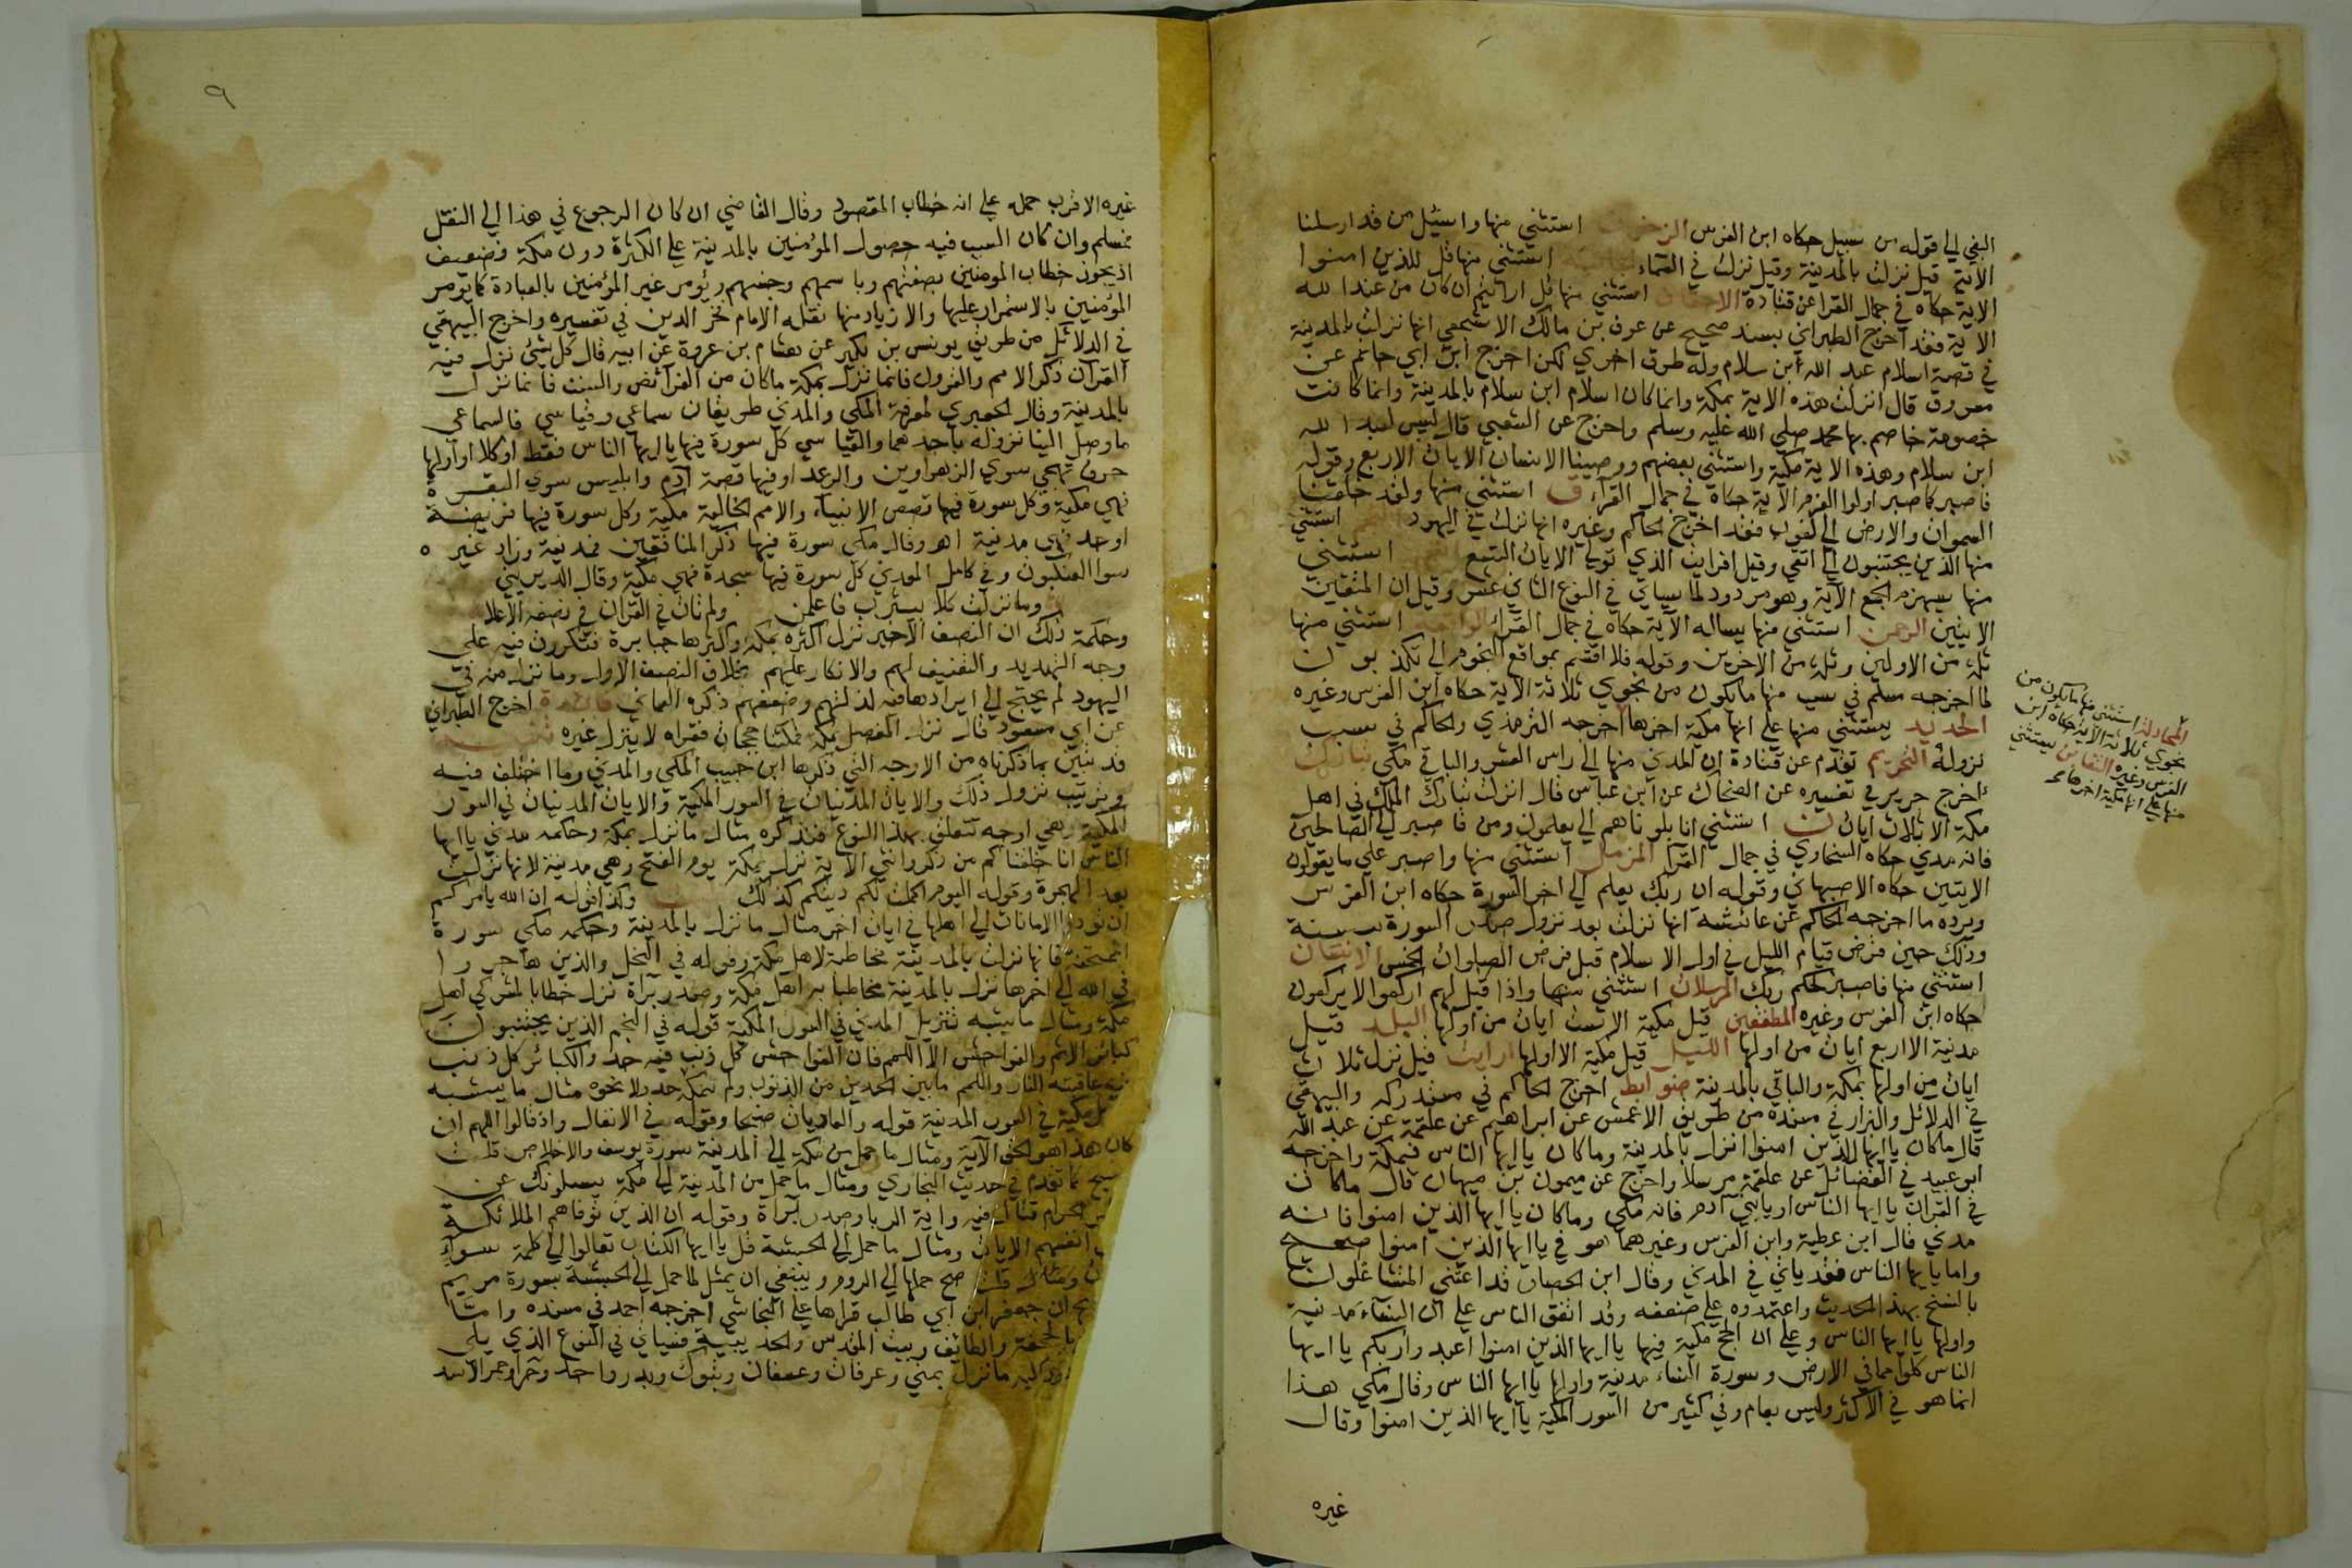 البغي الي قوله من سبيل حكاه ابن الفرس الزخرف استثني منها واسئل من قد ارسلنا
الاية قيل نزلت بالمدينة وقيل نزلت في السماء الجاثية استثني منها قل للذين امنوا
الاية حكاه في جمال القرا عن قتادة الاحقاف استثني منها قل ارايتم ان كان من عند الله
الاية فقد اخرج الطبراني بسند صحيح عن عوف بن مالك الاشجعي انها نزلت بالمدينة
في قصة اسلام عبد الله ابن سلام وله طرق اخري لكن اخرج ابن ابي حاتم عن
مسروق قال انزلت هذه الاية بمكة وانما كان اسلام ابن سلام بالمدينة وانما كانت
خصومة خاصم بها محمد صلي الله عليه وسلم واخرج عن الشعبي قال ليس لعبد الله
ابن سلام وهذه الاية مكية واستثني بعضهم ووصينا الانسان الايات الاربع وقوله
فاصبر كما صبر اولوا العزم الاية حكاه في جمال القرآء ق استثني منها ولقد خلقنا
السموات والارض الي لغوب فقد اخرج الحاكم وغيره انها نزلت في اليهود استثني
منها الذين يجتنبون الي اتقي وقيل افرايت الذي تولي الايات التسع استثني
منها سيهزم الجمع الآية وهو مردود لما سياتي في النوع الثاني عشر وقيل ان المتقين
الايتين الرحمن استثني منها يساله الآية حكاه في جمال القراء الواقعة استثني منها
ثلة من الاولين وثلة من الاخرين وقوله فلا اقسم بمواقع النجوم الي تكذبون
لما اخرجه مسلم في سبب منها ما يكون من نجوي ثلاثة الاية حكاه ابن الفرس وغيره
الحديد يستثني منها علي انها مكية اخرها اخرجه الترمذي والحاكم في سبب
نزوله التحريم تقدم عن قتادة ان المدني منها الي راس العشر والباقي مكي تبارك
اخرج جرير في تفسيره عن الضحاك عن ابن عباس قال انزلت تبارك الملك في اهل
مكة الا ثلاث ايات ن استثني انا بلوناهم الي يعلمون ومن فاصبر الي الصالحين
فانه مدني حكاه السخاوي في جمال القرا المزمل استثني منها واصبر علي ما يقولون
الايتين حكاه الاصبهاني وقوله ان ربك يعلم الي اخر السورة حكاه ابن الفرس
ويرده ما اخرجه الحاكم عن عائشة انها نزلت بعد نزول صدر السورة بسنة
وذلك حين فرض قيام الليل في اول الاسلام قبل فرض الصلوات الخمس الانسان
استثني منها فاصبر لحكم ربك المرسلات استثني منها واذا قيل لهم اركعوا لا يركعون
حكاه ابن الفرس وغيره المطففين قيل مكية الا ست ايات من اولها البلد قيل
مدنية الا اربع ايات من اولها الليل قيل مكية الا اولها ارايت قيل نزل ثلاث
ايات من اولها بمكة والباقي بالمدينة ضوابط اخرج الحاكم في مستدركه والبيهقي
في الدلائل والبزار في مسنده من طريق الاعمش عن ابراهيم عن علقمة عن عبد الله
قال ما كان يا ايها الذين امنوا انزل بالمدينة وما كان يا ايها الناس فبمكة واخرجه
ابو عبيد في الفضائل عن علقمة مرسلا واخرج عن ميمون بن ميهان قال ما كان
في القران يا ايها الناس او يا بني آدم فانه مكي وما كان يا ايها الذين امنوا فانه
مدني قال ابن عطية وابن الفرس وغيرهما هو في يا ايها الذين امنوا صحيح
واما يا يها الناس فقد ياتي في المدني وقال ابن الحصار قد اعتني المتشاغلون
بالنسخ بهذا الحديث واعتمدوه علي ضعفه وقد اتفق الناس علي ان النسآء مدنية
واولها يا ايها الناس وعلي ان الحج مكية فيها يا ايها الذين امنوا اعبدوا ربكم يا ايها
الناس كلوا مما في الارض وسورة النساء مدنية واولها يا ايها الناس وقال مكي هذا
انما هو في الاكثر وليس بعام وفي كثير من السور المكية يا ايها الذين امنوا وقال
غيره
المجادلة استثني منها ما يكون من
نجوي ثلاثة الاية حكاه ابن
الفرس وغيره التغابن يستثني
منها علي انها مكية اخرها
٩
غيره الاقرب حمله علي انه خطاب المقصود وقال القاضي ان كان الرجوع في هذا الي النقل
فمسلم وان كان السبب فيه حصول المؤمنين بالمدينة علي الكثرة دون مكة فضعيف
اذ يجوز خطاب المومنين بصفتهم وباسمهم وجنسهم ويؤمر غير المؤمنين بالعبادة كما يؤمر
المؤمنين بالاستمرار عليها والازياد منها نقله الامام فخر الدين في تفسيره واخرج البيهقي
في الدلائل من طريق يونس بن بكير عن هشام بن عروة عن ابيه قال كل شيئ نزل فيه
القرآن ذكر الامم والقرون فانما نزل بمكة ما كان من الفرائض والسنن فانما نزل
بالمدينة وقال الجعبري لمعرفة المكي والمدني طريقان سماعي وقياسي فالسماعي
ما وصل الينا نزوله باحدهما والقياسي كل سورة فيها يا ايها الناس فقط او كلا او اولها
حرف تهجي سوي الزهراوين والرعد او فيها قصة آدم وابليس سوي البقرة
فهي مكية وكل سورة فيها قصص الانبياء والامم الخالية مكية وكل سورة فيها فريضة
او حد فهي مدنية اهـ وقال مكي سورة فيها ذكر المنافقين فمدنية وزاد غيره
سوا العنكبوت وفي كامل الهدلي كل سورة فيها سجدة فهي مكية وقال الديريني
وما نزلت كلا بيثرب فاعلمن ولم تات في القران في نصفه الاعلا
وحكمة ذلك ان النصف الاخير نزل اكثره بمكة واكثرها جبابرة فتكررت فيه علي
وجه التهديد والتعنيف لهم والانكار عليهم بخلاف النصف الاول وما نزل منه في
اليهود لم يحتج الي ايرادها فيه لذلتهم وضعفهم ذكره العماني فائدة اخرج الطبراني
عن ابي مسعود قال نزل المفصل بمكة فمكثنا حججا نقراه لا ينزل غيره تنبيه
قد تبين بما ذكرناه من الاوجه التي ذكرها ابن حبيب المكي والمدني وما اختلف فيه
وترتيب نزول ذلك والايات المدنيات في السور المكية والايات المدنيات في السور
المكية وهي اوجه تتعلق بهذا النوع فنذكره مثال ما نزل بمكة وحكمه مدني يا ايها
الناس انا خلقناكم من ذكر وانثي الآية نزل بمكة يوم الفتح وهي مدنية لانها نزلت
بعد الهجرة وقوله اليوم اكملت لكم دينكم كذلك وكذا قوله ان الله يامركم
ان تودوا الامانات الي اهلها في ايات اخر مثال ما نزل بالمدينة وحكمه مكي سورة
الممتحنة فانها نزلت بالمدينة مخاطبة لاهل مكة وقوله في النحل والذين هاجروا
في الله الي اخرها نزل بالمدينة مخاطبا به اهل مكة وصدر برآة نزل خطابا لمشركي اهل
مكة ومثال ما يشبه تنزيل المدني في السور المكية قوله في النجم الذين يجتنبون
كبائر الاثم والفواحش الا اللمم فان الفواحش كل ذنب فيه حد والكبائر كل ذنب
فيه عاقبته النار واللمم ما بين الحدين من الذنوب ولم يكن بمكة حد ولا نحوه مثال ما يشبه
مكية في السور المدنية قوله والعاديات ضبحا وقوله في الانفال واذ قالوا اللهم ان
كان هذا هو الحق الآية ومثال ما حمل من مكة الي المدينة سورة يوسف والاخلاص قلت
سبح كما تقدم في حديث البخاري ومثال ما حمل من المدينة الي مكة يسلونك عن
الحرام قتال فيه واية الربا وصدر برآة وقوله ان الذين توفاهم الملائكة
انفسهم الايات ومثال ما حمل الي الحبشة قل يا ايها الكتاب تعالوا الي كلمة سوآء
صح حملها الي الروم وينبغي ان يمثل لما حمل الي الحبشة بسورة مريم
ان جعفر ابن ابي طالب قراها علي النجاشي اخرجه احمد في مسنده واما
بالجحفة والطائف وبيت المقدس والحديبية فسياتي في النوع الذي يلي
ما نزل بمني وعرفات وعسفان وتبوك وبدر واحد وحرا وحمر الاسد